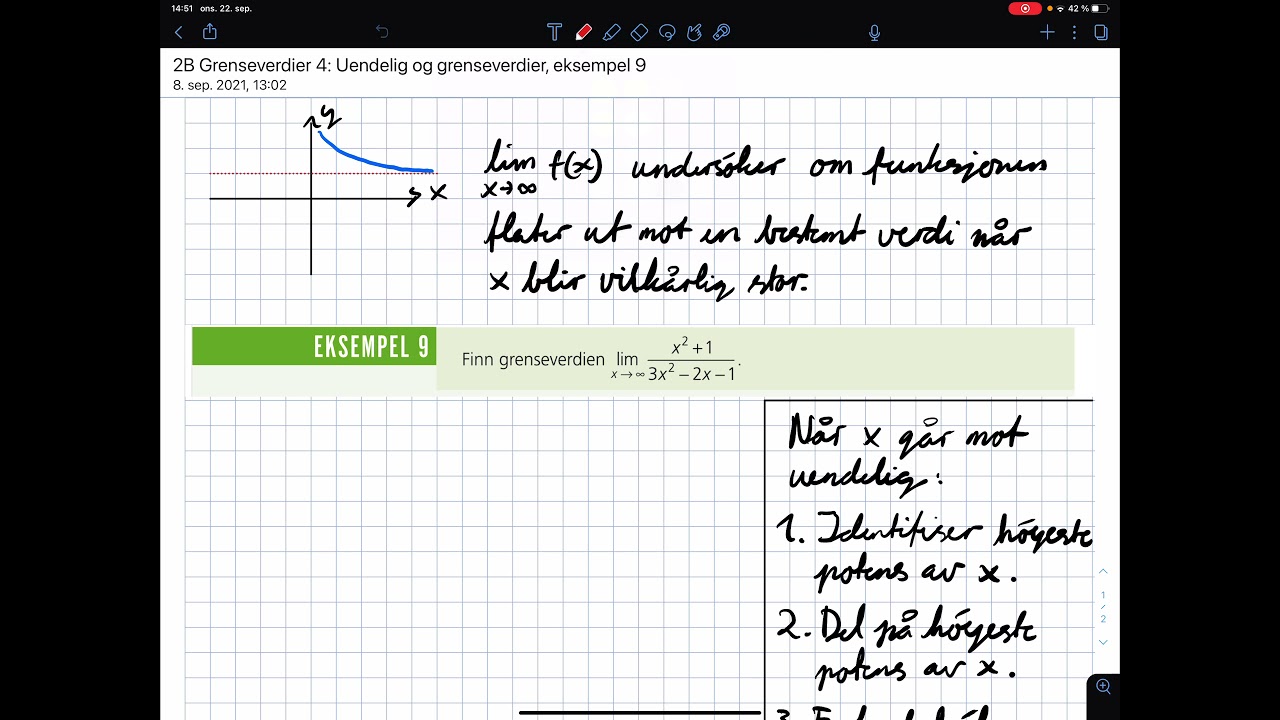 14:51 ons. 22. sep.
42 %
2B Grenseverdier 4: Uendelig og grenseverdier, eksempel 9
8. sep. 2021, 13:02
y
x
lim f(x) undersöker om funksjonen
x→∞
flater ut mot en bestemt verdi når
x blir vilkårlig stor.
EKSEMPEL 9
Finn grenseverdien lim x→∞ (x² + 1)/(3x² − 2x − 1).
Når x går mot
uendelig:
1. Identifiser högeste
potens av x.
2. Del på högeste
potens av x.
3.
1
/
2